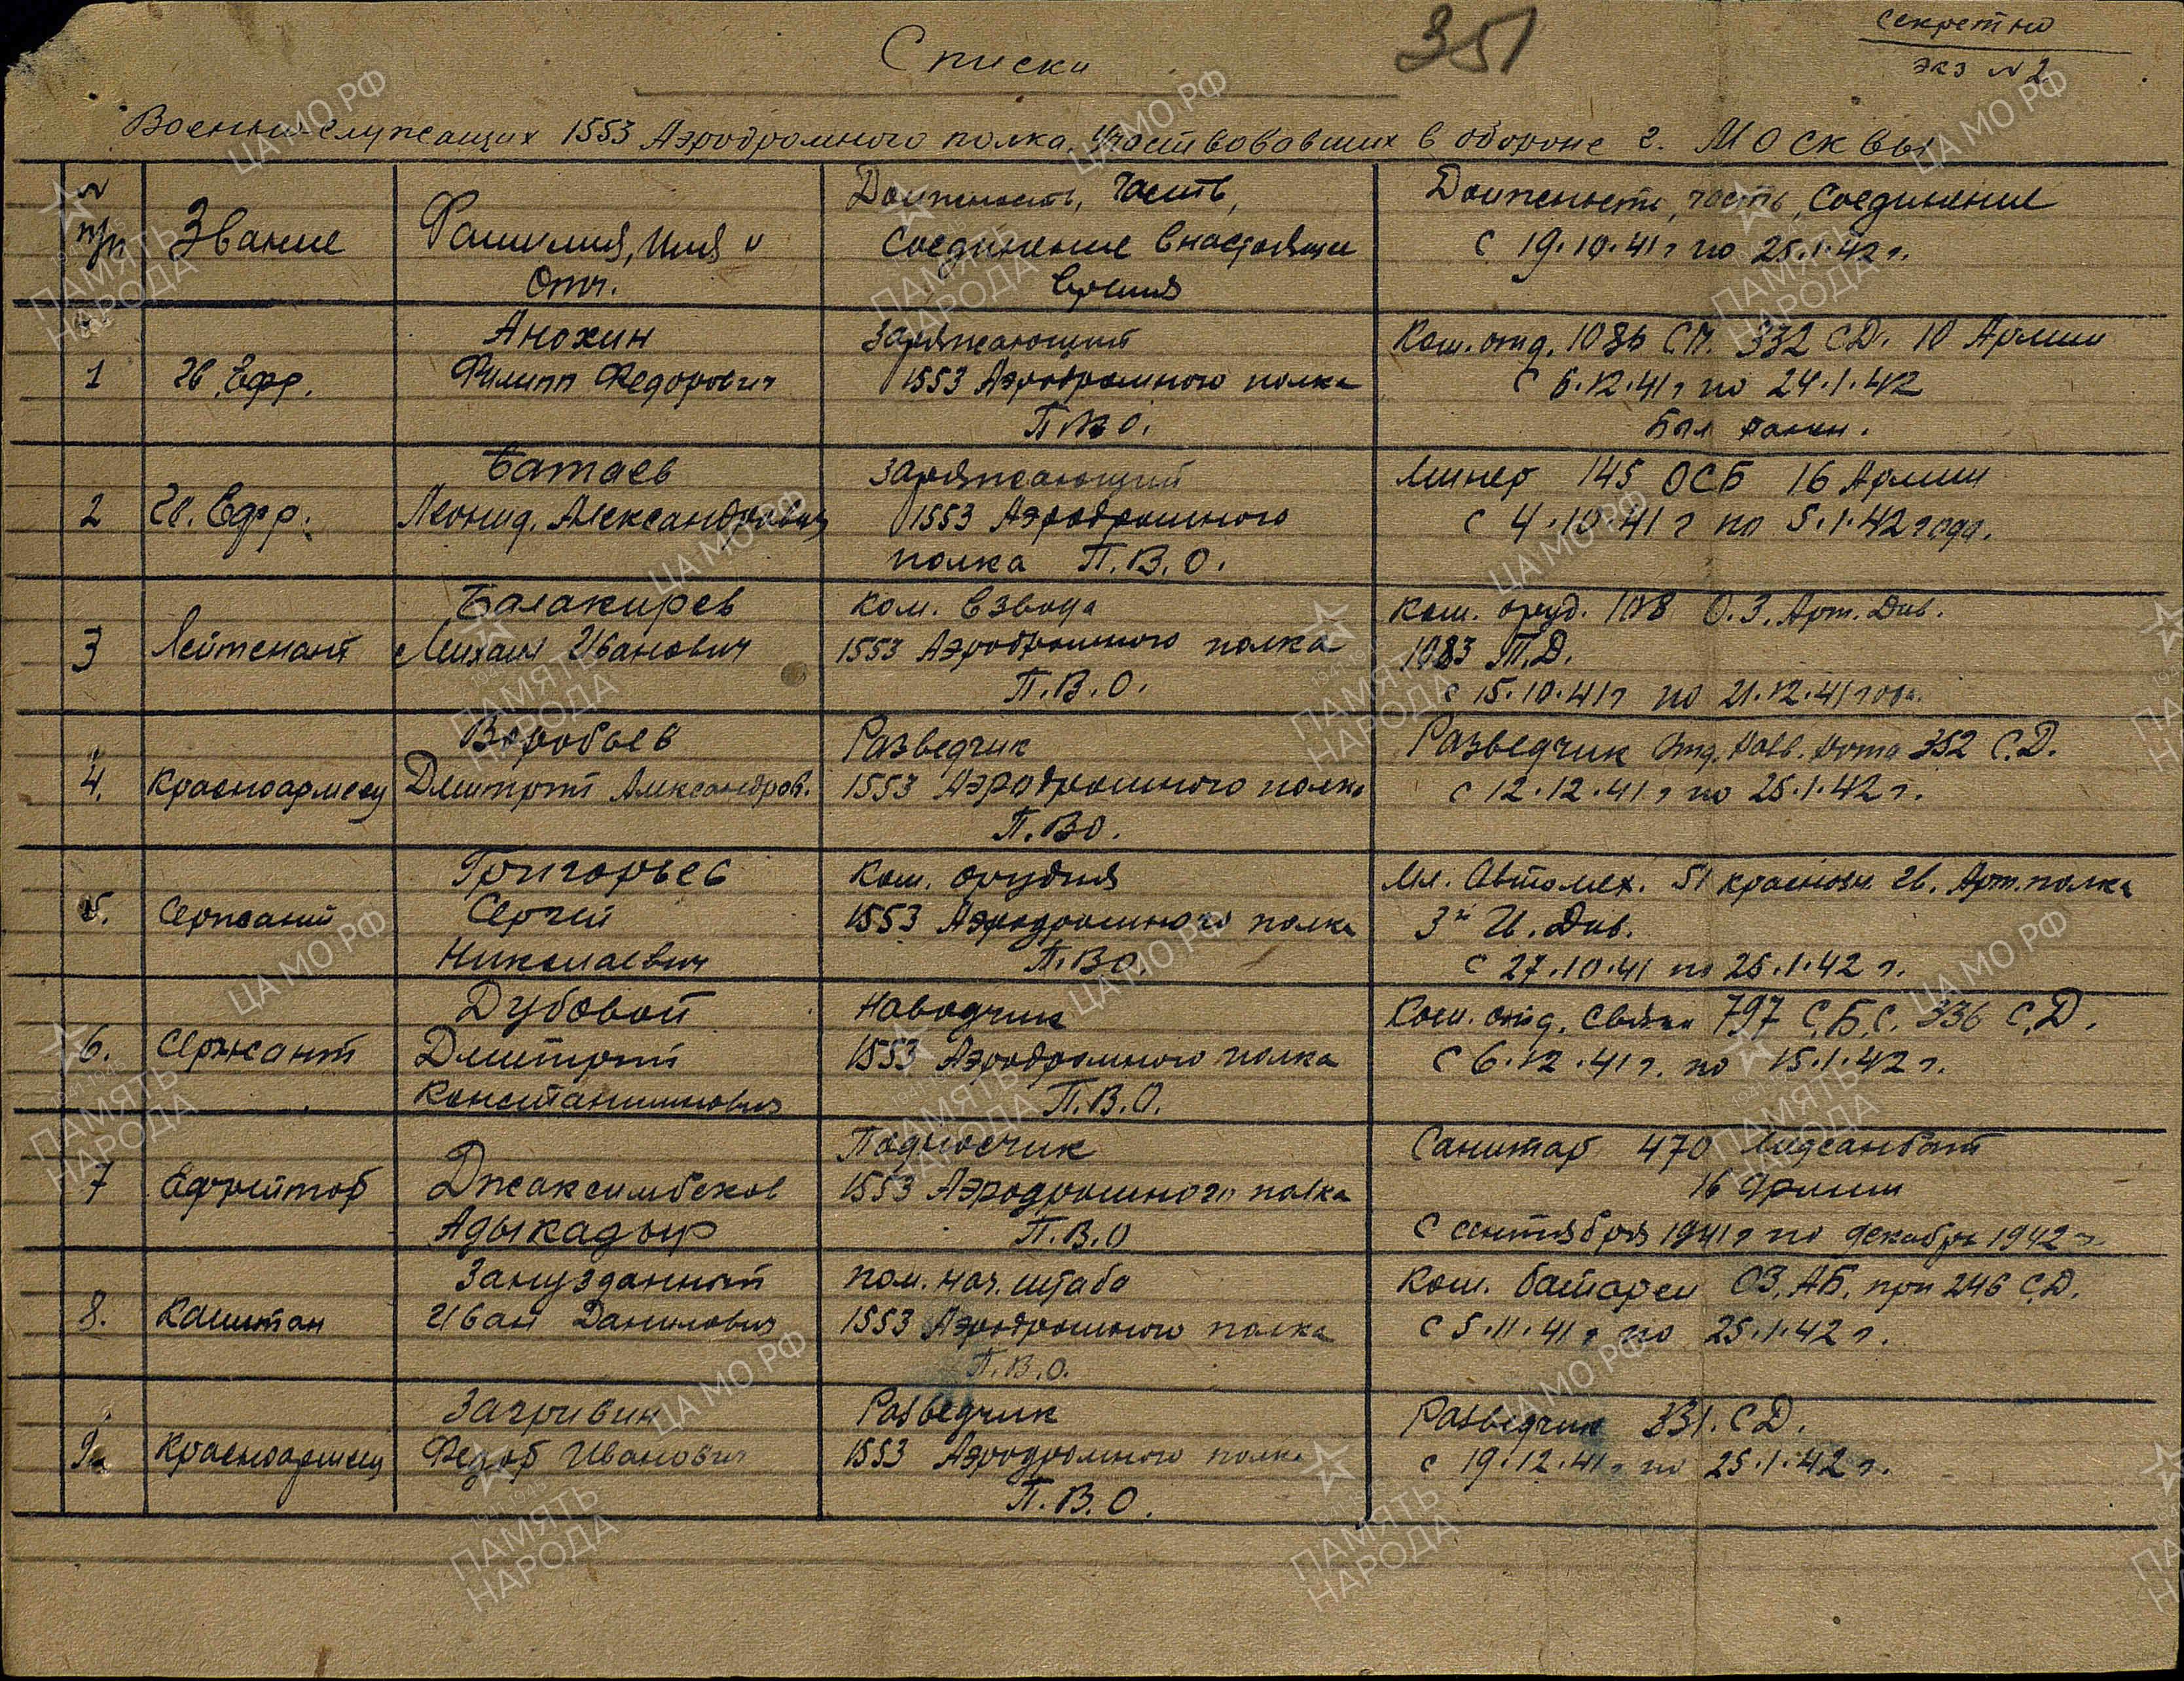 Секретно
экз № 2
351
Списки
Военнослужащих 1553 Аэродромного полка, участвовавших в обороне г. Москвы
№ п/п
Звание
Фамилия, Имя и
Отч.
Должность, часть,
Соединение в настоящее
время
Должность, часть, Соединение
с 19.10.41г по 25.1.42 г.
1
Гв. Ефр.
Анохин
Филипп Федорович
Заряжающий
1553 Аэродромного полка
ПВО.
Ком. отд. 1086 СП. 332 СД. 10 Армии
с 6.12.41г по 24.1.42
Был ранен.
2
Гв. Ефр.
Батаев
Леонид Александрович
Заряжающий
1553 Аэродромного
полка П.В.О.
Минер 145 ОСБ 16 Армии
с 4.10.41 г по 5.1.42 года.
3
Лейтенант
Балакирев
Михаил Иванович
Ком. взвода
1553 Аэродромного полка
П.В.О.
Ком. оруд. 108 О.З. Арт. Див.
1083 Т.Д.
с 15.10.41г по 21.12.41 года.
4.
Красноармеец
Воробьев
Дмитрий Александров.
Разведчик
1553 Аэродромного полка
П.ВО.
Разведчик Отд. Разв. Рота 352 С.Д.
с 12.12.41 г по 25.1.42 г.
5.
Сержант
Григорьев
Сергей
Николаевич
Ком. орудия
1553 Аэродромного полка
П.ВО
Мл. Автомех. 51 краснозн. гв. Арт. полка
3й И. Див.
с 27.10.41 по 25.1.42 г.
6.
Сержант
Дубовой
Дмитрий
Константинович
Наводчик
1553 Аэродромного полка
П.В.О.
Ком. отд. Связи 797 С.Б.С. 336 С.Д.
с 6.12.41 г. по 15.1.42 г.
7
Ефрейтор
Джаксимбеков
Адыкадыр
Подносчик
1553 Аэродромного полка
П.В.О
Санитар 470 Медсанбат
16 Армии
с сентября 1941 г по декабрь 1942 г
8.
Капитан
Занузданный
Иван Данилович
пом. нач. штаба
1553 Аэродромного полка
П.В.О.
Ком. батареи ОЗ. АБ. при 246 С.Д.
с 5.11.41 г по 25.1.42 г.
9.
Красноармеец
Загривин
Федор Иванович
Разведчик
1553 Аэродромного полка
П.В.О.
Разведчик 331. СД.
с 19.12.41г по 25.1.42 г.
ЦА МО РФ
1941-1945
ПАМЯТЬ
НАРОДА